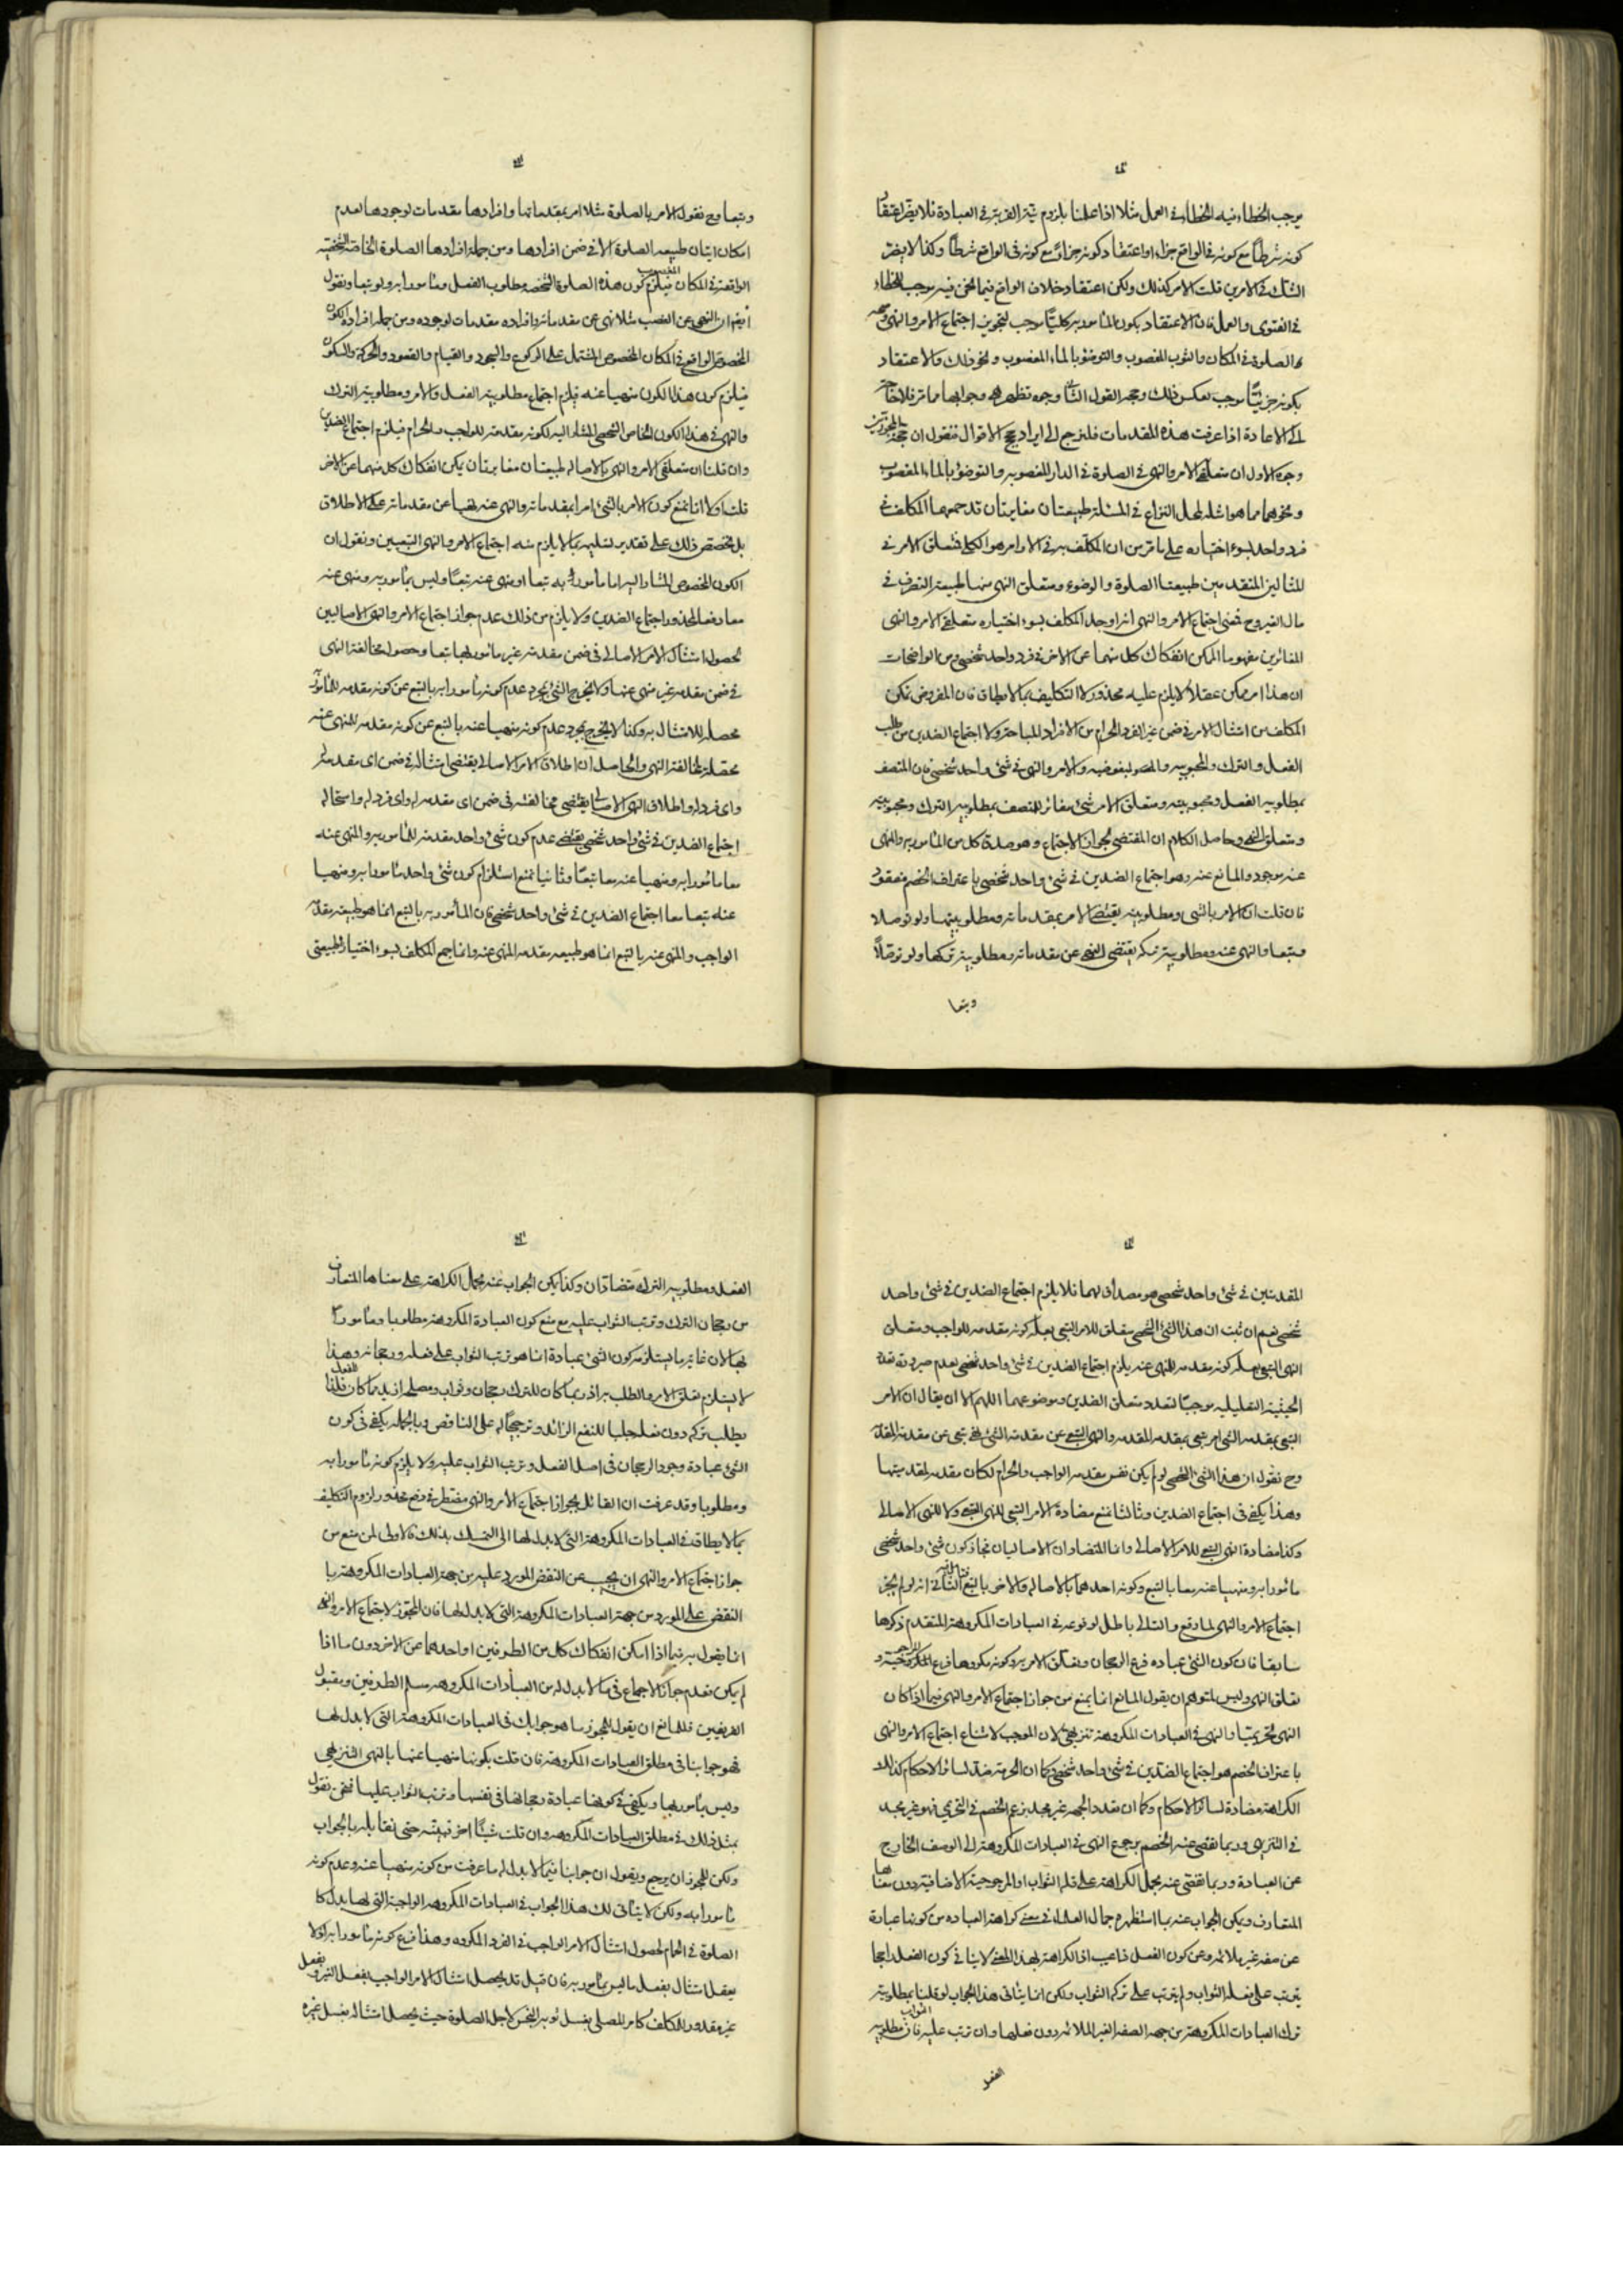 يوجب الخطاء فيه الخطاء في العمل مثلا اذا علمنا بلزوم نية القربة في العبادة فلا يضر اعتقاد
كونه شرطاً مع كونه في الواقع جزاء او اعتقاد كونه جزاءً مع كونه في الواقع شرطاً وكذا لا يضر
الشك في الامرين قلت الامر كذلك ولكن اعتقاد خلاف الواقع فيما نحن فيه يوجب الخطاء
في الفتوى والعمل فان الاعتقاد بكون المأمور به كليّاً موجب لتجويز اجتماع الامر والنهى
الصلوة في المكان والثوب المغصوب والتوضؤ بالماء المغصوب ونحو ذلك والاعتقاد
بكونه جزئيّاً موجب لعكس ذلك وحجر القول الثاني وجوه تظهر هي وجوابها مما مر فلا حاجة
الى الاعادة اذا عرفت هذه المقدمات فلنرجع الى ايراد حجج الاقوال فنقول ان حجة المجوزين
وجوه الاول ان متعلقى الامر والنهى في الصلوة في الدار المغصوبه والتوضؤ بالماء المغصوب
ونحوهما مما هو امثله لمحل النزاع في المسئلة طبيعتان مغايرتان قد جمعهما المكلف في
فرد واحد بسوء اختياره على ما مر من ان المكلف به في الاوامر هو الكلى فتعلق الامر في
المثالين المتقدمين طبيعتا الصلوة والوضوء ومتعلق النهى منها طبيعة التصرف في
مال الغير وح فمعنى اجتماع الامر والنهى انه اوجد المكلف بسوء اختياره متعلقى الامر والنهى
المغائرين مفهوما الممكن انفكاك كل منهما عن الاخر في فرد واحد شخصى ومن الواضحات
ان هذا امر ممكن عقلاً لا يلزم عليه محذور لا التكليف بما لا يطاق فان المفروض تمكن
المكلف من امتثال الامر في ضمن غير الفرد الحرام من الافراد المباحة ولا اجتماع الضدين من طلب
الفعل والترك والمحبوبيه والمبغوضيه والامر والنهى في شئ واحد شخصى فان المتصف
بمطلوبيه الفعل ومحبوبيته ومتعلق الامر شئ مغائر للمتصف بمطلوبيه الترك ومحبوبيته
ومتعلق النهى وحاصل الكلام ان المقتضى لجواز الاجتماع وهو صدق كل من المأمور به والنهى
عنه موجود والمانع عنه وهو اجتماع الضدين في شئ واحد شخصى باعتراف الخصم مفقود
فان قلت ان الامر بالشى ومطلوبيته يقتضى الامر بمقدماته ومطلوبيتها ولو توصلا
وتبعا والنهى عنه ومطلوبية تركه يقتضى النهى عن مقدماته ومطلوبية تركها ولو توصّلاً
وتبعا
وتبعا وح نقول الامر بالصلوة مثلا امر بمقدماتها وافرادها مقدمات لوجودها لعدم
امكان اتيان طبيعه الصلوة الا في ضمن افرادها ومن جملة افرادها الصلوة الخاصة الشخصية
الواقعة في المكان المغصوب فيلزم كون هذه الصلوة الشخصه مطلوب الفعل ومأمورا به ولو تبعا ونقول
ايضا ان النهى عن الغصب مثلا نهى عن مقدماته وافراده مقدمات لوجوده ومن جمله افراده الكون
المخصوص الواقع في المكان المخصوص المشتمل على الركوع والسجود والقيام والقعود والحركة والسكون
فيلزم كون هذا الكون منهيا عنه فيلزم اجتماع مطلوبية الفعل والامر ومطلوبية الترك
والنهى في هذا الكون الخاص الشخصى المشار اليه لكونه مقدمة للواجب والحرام فيلزم اجتماع الضدين
وان قلنا ان متعلقى الامر والنهى بالاصاله طبيعتان مغايرتان يمكن انفكاك كل منهما عن الاخر
قلت اولا انا نمنع كون الامر بالشئ امرا بمقدماته والنهى عنه نهيا عن مقدماته على الاطلاق
بل نخصص ذلك على تقدير تسليمه بما لا يلزم منه اجتماع الامر والنهى التبعيين ونقول ان
الكون المخصوص المشار اليه اما مأمور به تبعا او منهى عنه تبعاً وليس بمأمور به ومنهى عنه
معا دفعا لمحذور اجتماع الضدين ولا يلزم من ذلك عدم جواز اجتماع الامر والنهى الاصاليين
لحصول امتثال الامر الاصالى في ضمن مقدمة غير مأمور بها تبعا وحصول مخالفة النهى
في ضمن مقدمه غير منهى عنها ولا يخرج الشئ بمجرد عدم كونه مأمورا به بالتبع عن كونه مقدمه للمأمور
محصله للامتثال به وكذا لا يخرج بمجرد عدم كونه منهيا عنه بالتبع عن كونه مقدمه للمنهى عنه
محصلة لمخالفة النهى والحاصل ان اطلاق الامر الاصالى يقتضى امتثاله في ضمن اى مقدمة
واى فرد له واطلاق النهى الاصالى يقتضى مخالفته في ضمن اى مقدمه له واى فرد له واستحاله
اجتماع الضدين في شئ واحد شخصى يقتضى عدم كون شئ واحد مقدمة للمأمور به والمنهى عنه
معا مأمورا به ومنهيا عنه معا تبعاً وثانيا نمنع استلزام كون شئ واحد مأمورا به ومنهيا
عنه تبعا معا اجتماع الضدين في شئ واحد شخصى فان المأمور به بالتبع انما هو طبيعة مقدمة
الواجب والمنهى عنه بالتبع انما هو طبيعه مقدمه المنهى عنه وانما جمع المكلف بسوء اختياره طبيعتى
المقدمتين في شئ واحد شخصى هو مصداق لهما فلا يلزم اجتماع الضدين في شئ واحد
شخصى نعم ان ثبت ان هذا الشئ الشخصى متعلق للامر التبعى بعلة كونه مقدمه للواجب ومتعلق
النهى التبعى بعلة كونه مقدمه للنهى عنه يلزم اجتماع الضدين في شئ واحد شخصى لعدم صيرورة تعدد
الحيثية التعليليه موجبا لتعدد متعلق الضدين وموضوعهما اللهم الا ان يقال ان الامر
التبعى بمقدمه الشئ امر تبعى بمقدمه المقدمه والنهى التبعى عن مقدمة الشئ نهى تبعى عن مقدمة المقدمة
وح نقول ان هذا الشئ الشخصى لو لم يكن نفس مقدمه الواجب والحرام لكان مقدمه لمقدميتها
وهذا يكفى في اجتماع الضدين وثالثا نمنع مضادة الامر التبعى للنهى التبعى ولا للنهى الاصالى
وكذا مضادة النهى التبعى للامر الاصالى وانما المتضادان الاصاليان فجاز كون شئ واحد شخصى
مأمورا به ومنهيا عنه معا بالتبع وكونه احدهما بالاصاله والاخر بالتبع الثانى انه لو لم يجز
اجتماع الامر والنهى لما وقع والتالى باطل لوقوعه في العبادات المكروهة المتقدم ذكرها
سابقا فان كون الشئ عباده فرع الرجحان وتعلق الامر به وكونه مكروها فرع المرجوحية و
تعلق النهى وليس لمتوهم ان يقول المانع انما يمنع من جواز اجتماع الامر والنهى فيما اذا كان
النهى تحريميّا والنهى في العبادات المكروهة تنزيهى لان الموجب لامتناع اجتماع الامر والنهى
باعتراف الخصم هو اجتماع الضدين في شئ واحد شخصى وكما ان الحرمة ضد لسائر الاحكام كذلك
الكراهة مضادة لسائر الاحكام وكما ان تعدد الجهه غير مجد بزعم الخصم في التحريمى فهو غير مجد
في التنزيهى وربما تفصى عنه الخصم برجوع النهى في العبادات المكروهة الى الوصف الخارج
عن العبادة وربما تفصى عنه بحمل الكراهة على قله الثواب او المرجوحية الاضافية دون معناها
المتعارف ويمكن الجواب عنه بما استظهره جمال العلماء في معنى كراهة العباده من كونها عبارة
عن صفه غير ملائمه وعن كون الفعل ذا عيب اذ الكراهة بهذا المعنى لا ينافى كون الفعل راجحا
يترتب على فعله الثواب ولم يترتب على تركه الثواب ولكن انما يتأتى هذا الجواب لو قلنا بمطلوبية
ترك العبادات المكروهة من جهه الصفه الغير الملائمه دون فعلها وان ترتب عليه الثواب فان مطلوبيه
الفعل
الفعل ومطلوبيه الترك متضادان وكذا يمكن الجواب عنه بحمل الكراهة على معناها المتعارف
من رجحان الترك وترتب الثواب عليه مع منع كون العبادة المكروهة مطلوبا ومأمورا
بها لان غاية ما يستلزمه كون الشئ عبادة انما هو ترتب الثواب على فعله ورجحانه وهذا
لا يستلزم تعلق الامر والطلب به اذ ربما كان للترك رجحان وثواب ومصلحه ازيد مما كان للفعل فلذا
يطلب تركه دون فعله جلبا للنفع الزائد وترجيحا له على الناقص وبالجمله يكفى في كون
الشئ عبادة وجود الرجحان في اصل الفعل وترتب الثواب عليه ولا يلزم كونه مأمورا به
ومطلوبا وقد عرفت ان القائل بجواز اجتماع الامر والنهى مضطر في دفع محذور لزوم التكليف
بما لا يطاق في العبادات المكروهة التى لا بدل لها الى التمسك بذلك فالاولى لمن منع من
جواز اجتماع الامر والنهى ان يجيب عن النقض المورد عليه من جهة العبادات المكروهة با
النقض على المورد من جهة العبادات المكروهة التى لا بدل لها فان المجوز لاجتماع الامر والنهى
انما يقول به فيما اذا امكن انفكاك كل من الطرفين او احدهما عن الاخر دون ما اذا
لم يكن فعدم جواز الاجتماع في ما لا بدل له من العبادات المكروهه مسلم الطرفين ومقبول
الفريقين فللمانع ان يقول للمجوز ما هو جوابك في العبادات المكروهة التى لا بدل لها
فهو جوابنا في مطلق العبادات المكروهة فان قلت بكونها منهيا عنها بالنهى التنزيهى
وليس بأمور بها ويكفى في كونها عبادة رجحانها في نفسها وترتب الثواب عليها فنحن نقول
بمثل ذلك في مطلق العبادات المكروهه وان قلت شيئاً اخر فبينه حتى نقابله بالجواب
ولكن للمجوز ان يرجع ويقول ان جوابنا فيما لا بدل له ما عرفت من كونه منهيا عنه وعدم كونه
مأمورا به ولكن لا يتأتى لك هذا الجواب في العبادات المكروهه الواجبة التى لها بدل كا
الصلوة في الحمام لحصول امتثال الامر الواجب في الفرد المكروه وهذا فرع كونه مأمورا به اذ لا
يعقل امتثال بفعل ما ليس بمأمور به فان قيل قد يحصل امتثال الامر الواجب بفعل الغير وبفعل
غير مقدور للمكلف كامر المصلى بغسل ثوبه النجس لاجل الصلوة حيث يحصل امتثاله بغسل غيره